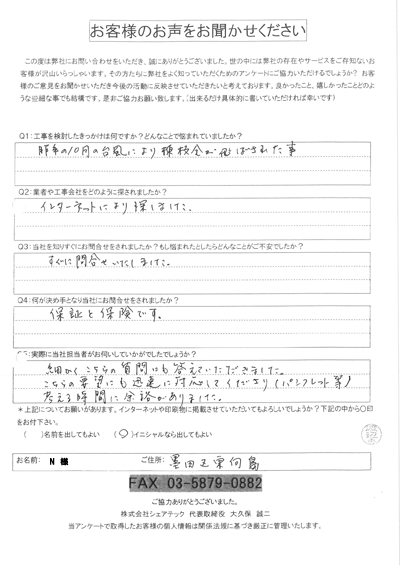 お客様のお声をお聞かせください
この度は弊社にお問い合わせをいただき、誠にありがとうございました。世の中には弊社の存在やサービスをご存知ないお
客様が沢山いらっしゃいます。その方たちに弊社をよく知っていただくためのアンケートにご協力いただけるでしょうか？ お客
様のご意見をお聞かせいただき今後の活動に反映させていただきたいと考えております。良かったこと、嬉しかったことどのよ
うな些細な事でも結構です。是非ご協力お願い致します。（出来るだけ具体的に書いていただければ幸いです）
Q1：工事を検討したきっかけは何ですか？どんなことで悩まれていましたか？
昨年の10月の台風により棟板金が飛ばされた事
Q2：業者や工事会社をどのように探されましたか？
インターネットにより探しました。
Q3：当社を知りすぐにお問合せをされましたか？もし悩まれたとしたらどんなことがご不安でしたか？
すぐに問合せいたしました。
Q4：何が決め手となり当社にお問合せをされましたか？
保証と保険です。
実際に当社担当者がお伺いしていかがでしたでしょうか？
細かくこちらの質問にも答えていただきました。
こちらの要望にも迅速に対応してくださり（パンフレット等）
考える時間に余裕がありました。
＊上記についてお願いがあります。インターネットや印刷物に掲載させていただいてもよろしいでしょうか？下記の中から〇印
をお付下さい。
（ ）名前を出してもよい （〇）イニシャルなら出してもよい
お名前： N 様 ご住所： 墨田区東向島
FAX 03-5879-0882
ご協力ありがとうございました。
株式会社シェアテック 代表取締役 大久保 誠二
当アンケートで取得したお客様の個人情報は関係法規に基づき厳正に管理いたします。